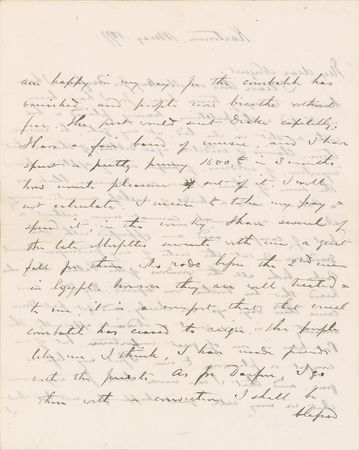 am happy in my way, for the courbatch has
vanished and people now breathe without
fear. The post would suit Drake capitally,
I have a fair band of music, and I have
spent a pretty penny 1500£ in 3 months,
how much pleasure out of it, I will
not calculate. I mean to take my pay &
spend it, in the country. I have several of
the late Muftis servants with me, a great
fall for them. He rode before the 2nd man
in Egypt, however they are well treated &
to me it is a comfort that that cruel
courbatch has ceased to reign. The people
like me, I think, I have made friends
with the priests. As for Darfur, I go
there with conviction I shall be
blessed